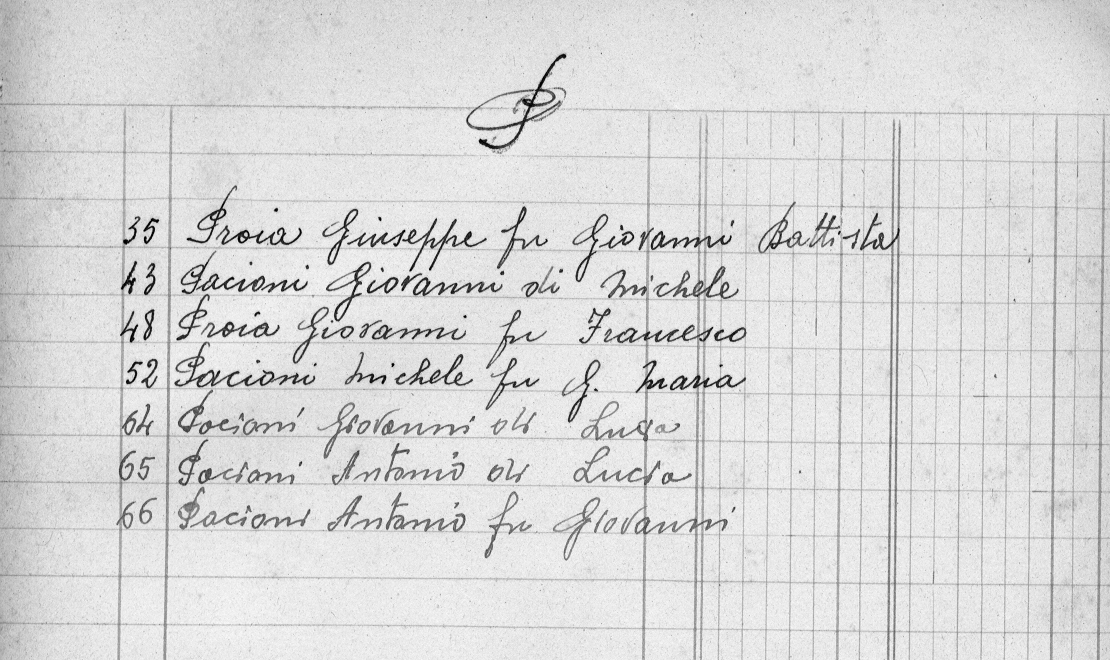 P
35 Proia Giuseppe fu Giovanni Battista
43 Pacioni Giovanni di Michele
48 Proia Giovanni fu Francesco
52 Pacioni Michele fu G. Maria
64 Pacioni Giovanni di Lucia
65 Pacioni Antonio di Lucia
66 Pacioni Antonio fu Giovanni